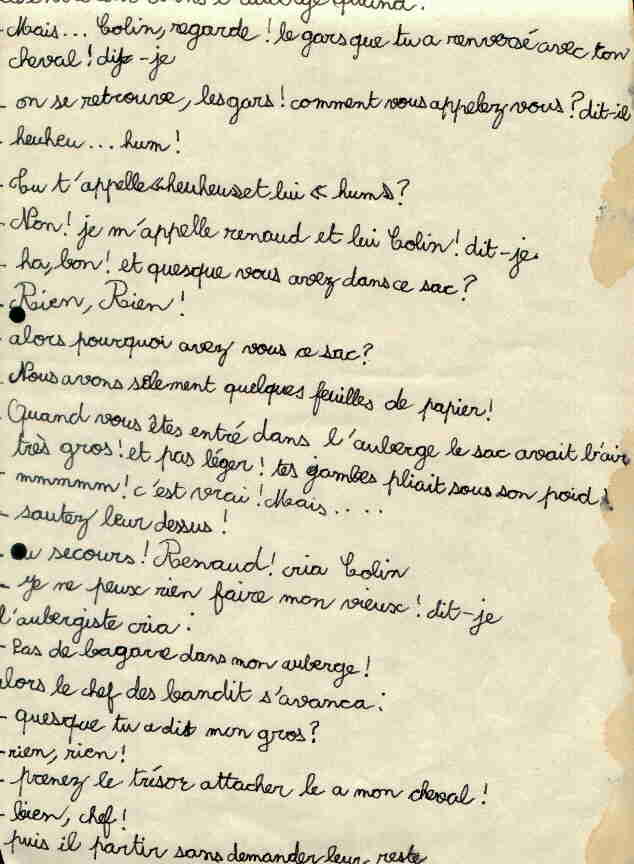 l'auberge quand :
- Mais... Colin, regarde ! le gars que tu a renversé avec ton
cheval ! dit-je
- on se retrouve, les gars ! comment vous appelez vous ? dit-il
- heuheu... hum !
- Tu t'appelle «heuheu» et lui « hum» ?
- Non ! je m'appelle renaud et lui Colin ! dit-je.
- ha, bon ! et quesque vous avez dans ce sac ?
- Rien, Rien !
- alors pourquoi avez vous ce sac ?
- Nous avons sëlement quelques feuilles de papier !
- Quand vous êtes entré dans l'auberge le sac avait l'air
très gros ! et pas léger ! tes jambes pliait sous son poid !
- mmmmm ! c'est vrai ! Mais....
- sautez leur dessus !
- au secours ! Renaud ! cria Colin
- je ne peux rien faire mon vieux ! dit-je
l'aubergiste cria :
- Pas de bagare dans mon auberge !
alors le chef des bandit s'avanca :
- quesque tu a dit mon gros ?
- rien, rien !
- prenez le trésor attacher le a mon cheval !
- bien, chef !
puis il partir sans demander leur reste